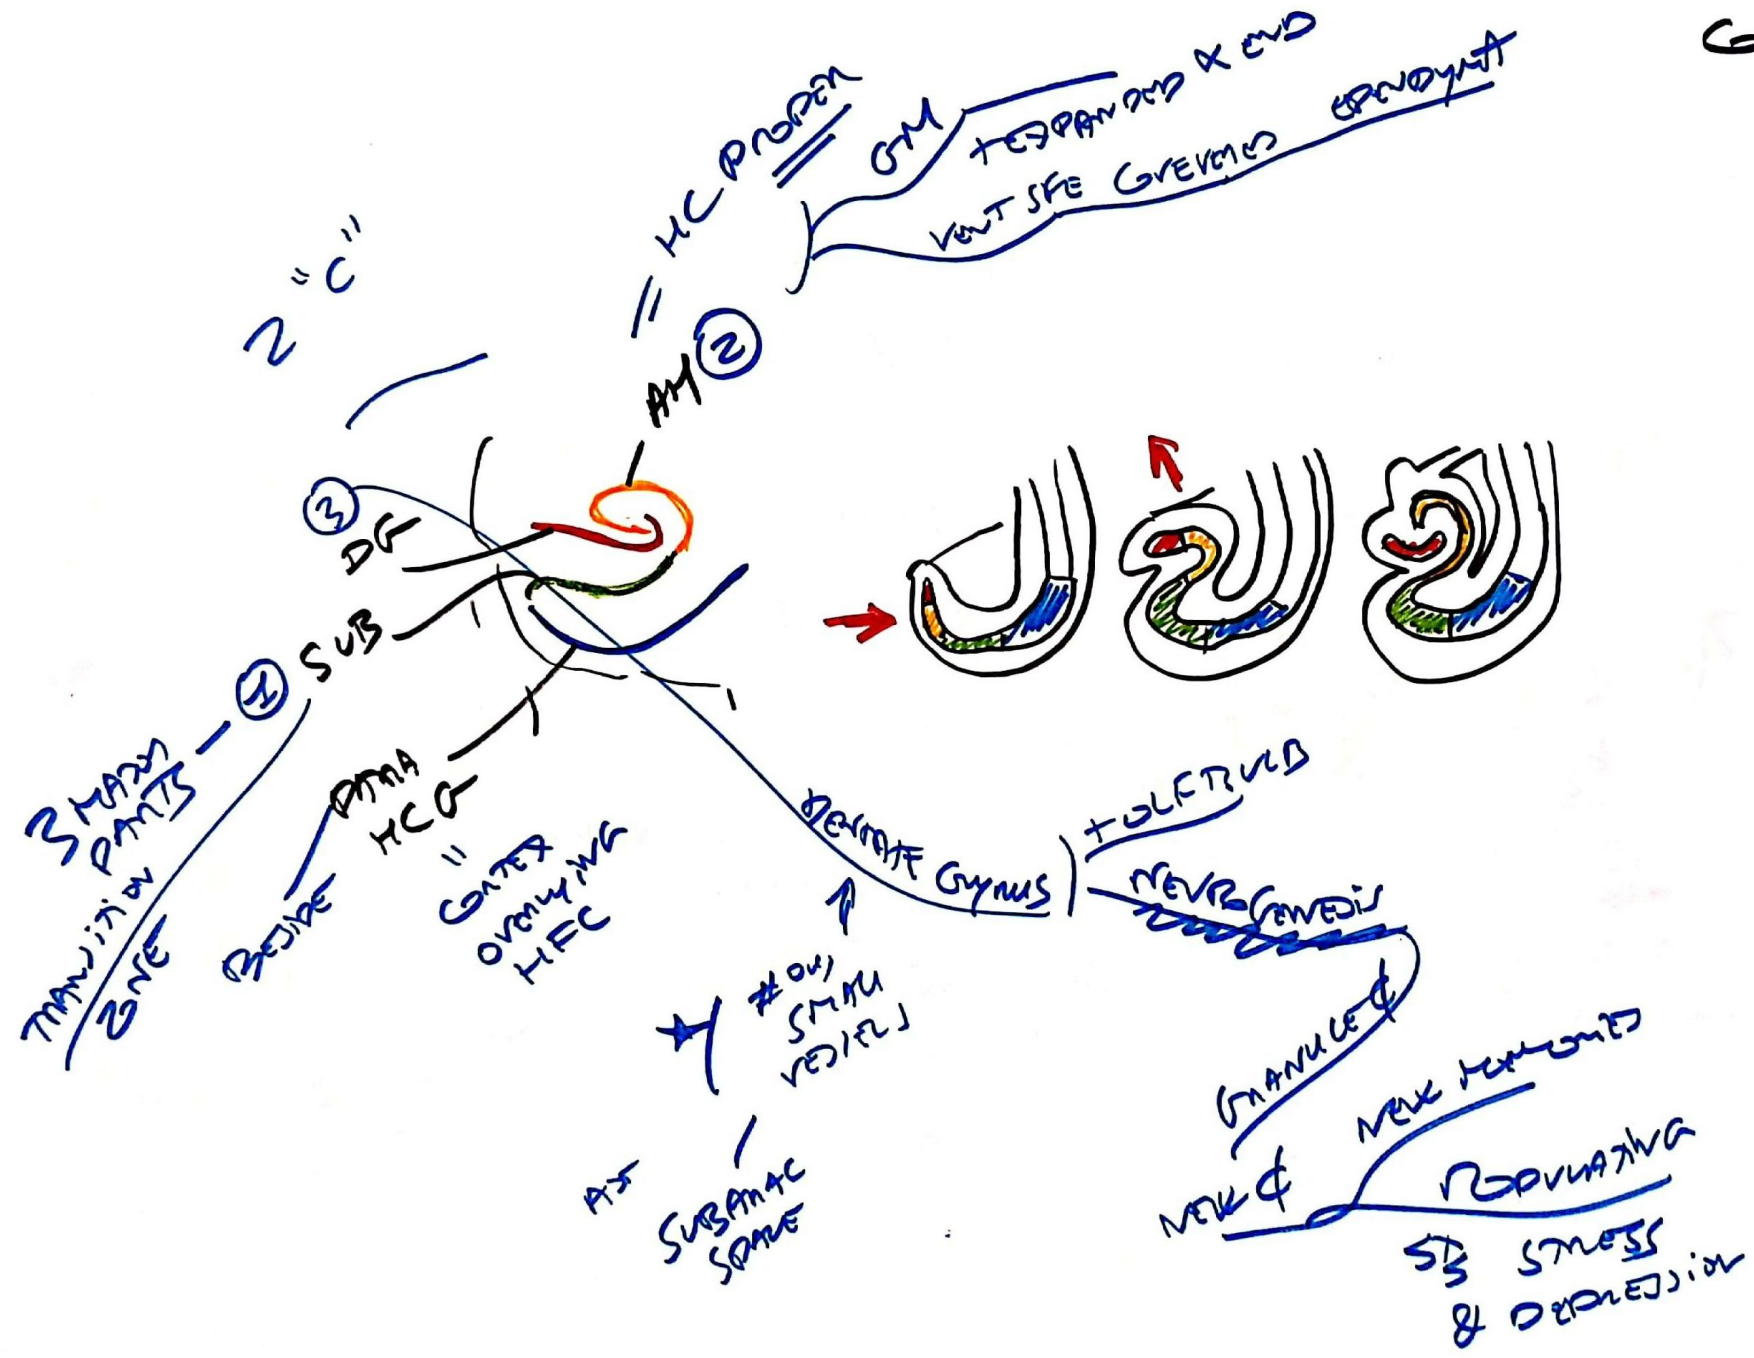 G
2 "C"
= HC PROPER
AH ②
GM
+ EXPANDED X END
VENT SFE COVERED EPENDYMA
③
DG
SUB
①
3 MAJOR
PARTS
TRANSITION
ZONE
PARA
HCG
BESIDE
"
CORTEX
OVERLYING
HFC
DENTATE GYRUS
+ OLF BULB
NEUROGENESIS
GRANULE ₵
NEW ₵
NEW MEMORIES
MODULATING
STRESS
& DEPRESSION
# OUS
SMALL
VESSELS
SUBARAC
SPACE